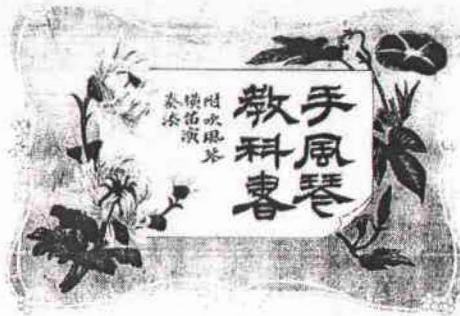 手風琴
教科書
附吹風琴
橫笛演
奏法